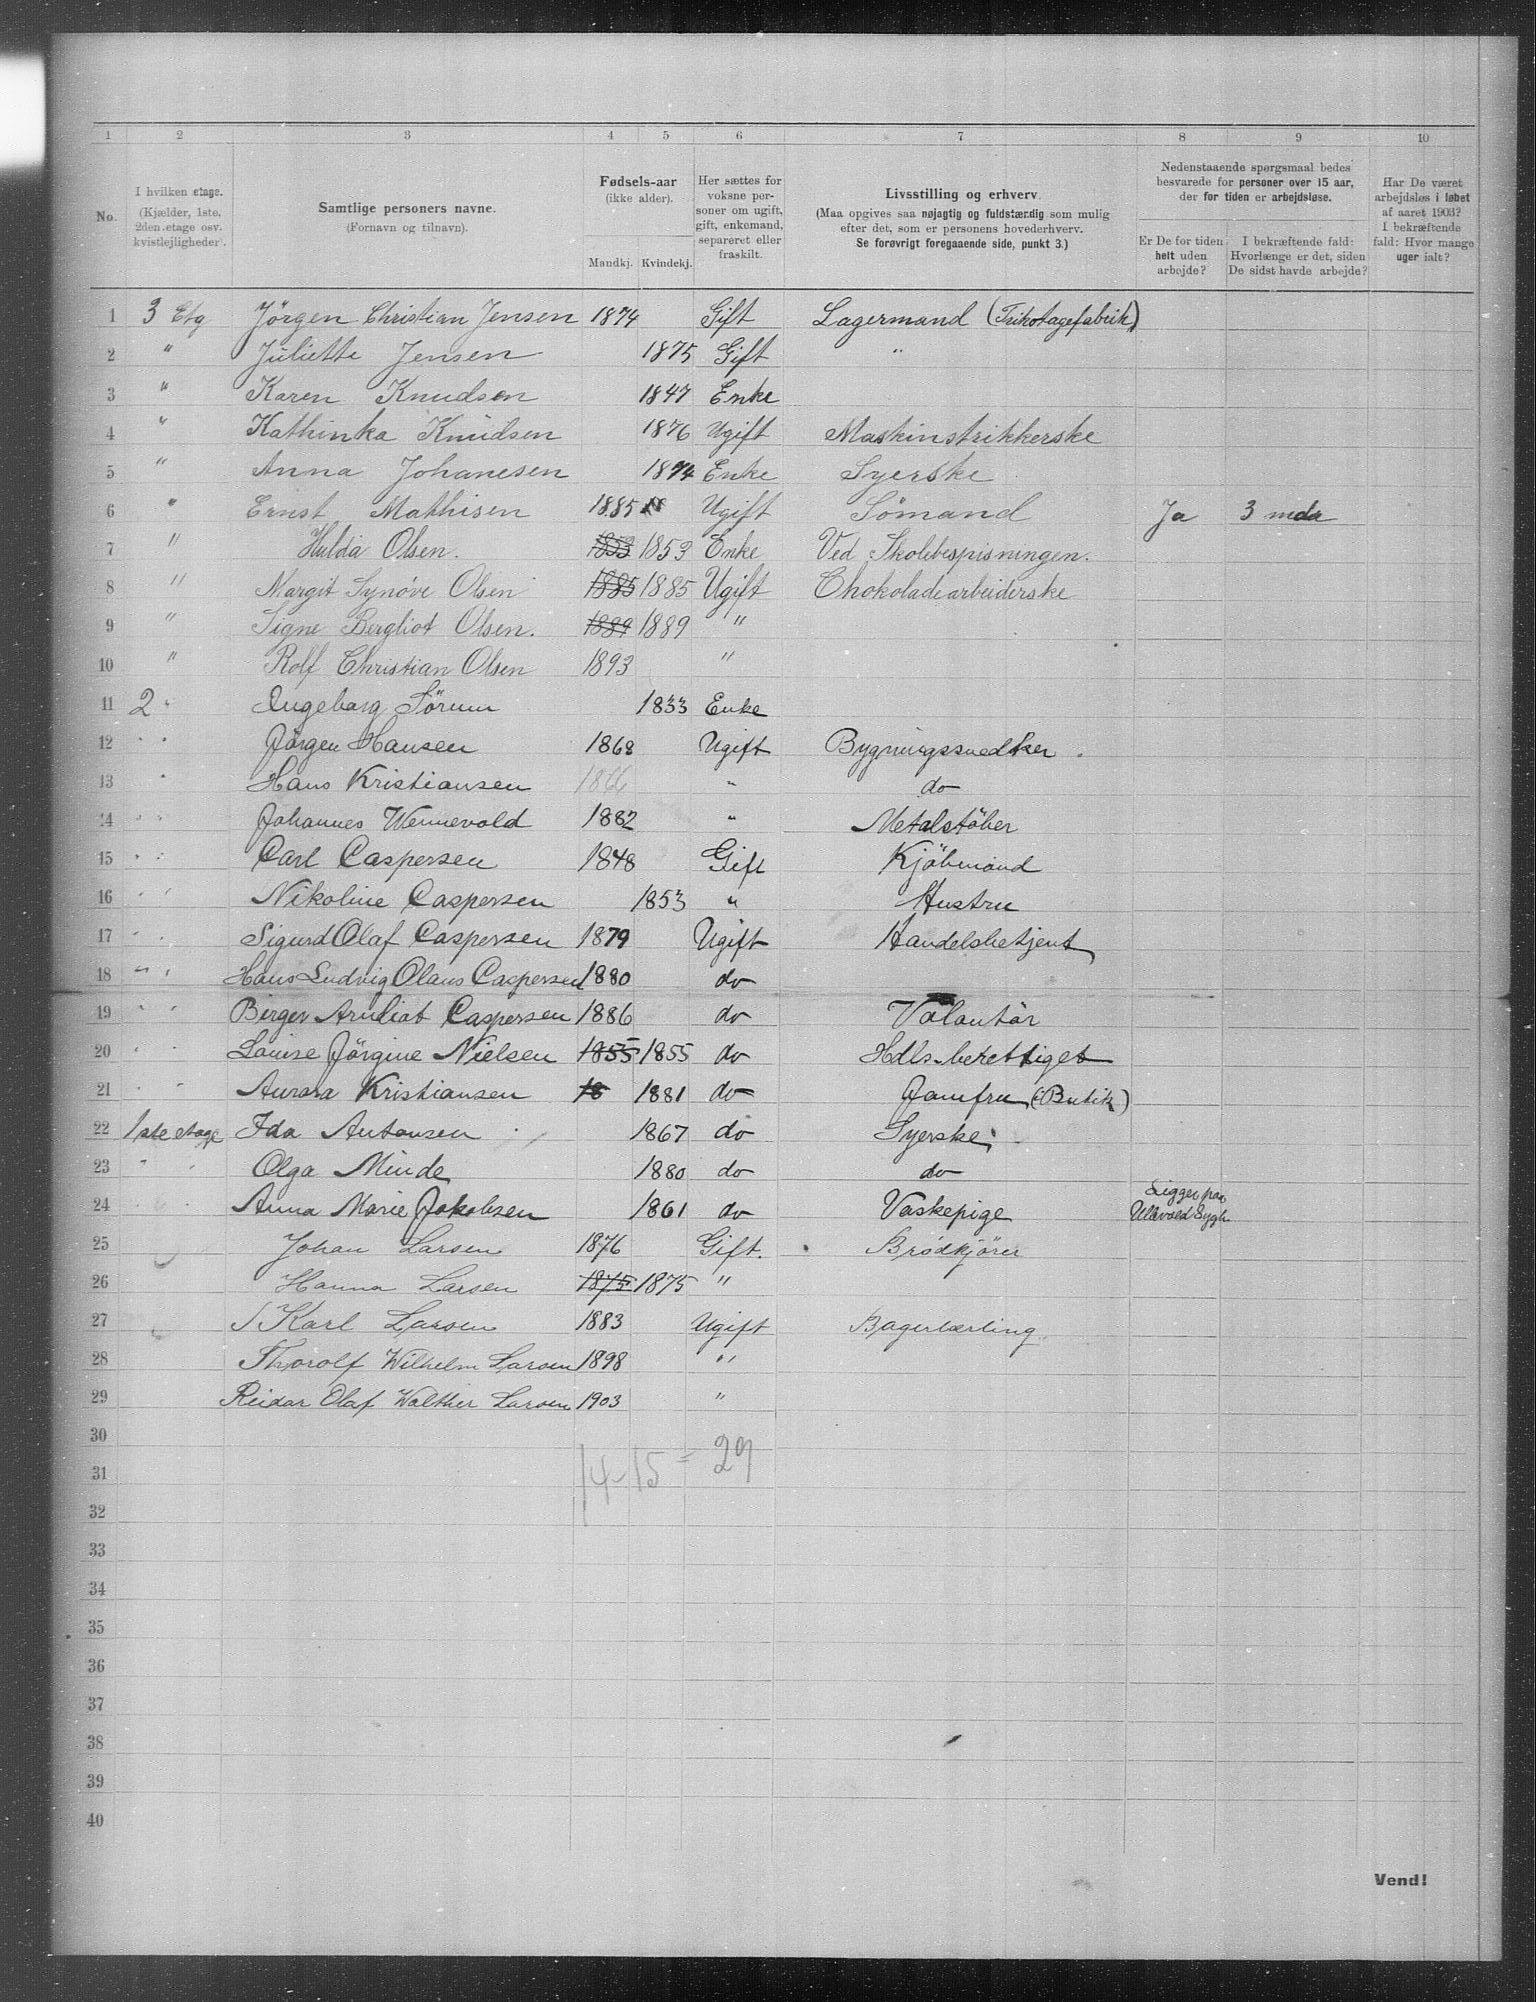 1 2 3 4 5 6 7 8 9 10
No.
I hvilken etage.
(Kjælder, 1ste, 2den etage osv. kvistlejligheder).
Samtlige personers navne.
(Fornavn og tilnavn).
Fødsels-aar
(ikke alder).
Mandkj. Kvindekj.
Her sættes for voksne personer om ugift, gift, enkemand, separeret eller fraskilt.
Livsstilling og erhverv.
(Maa opgives saa nøjagtig og fuldstændig som mulig
efter det, som er personens hovederhverv.
Se forøvrigt foregaaende side, punkt 3.)
Nedenstaaende spørgsmaal bedes
besvarede for personer over 15 aar,
der for tiden er arbejdsløse.
Er De for tiden helt uden arbejde?
I bekræftende fald: Hvorlænge er det, siden De sidst havde arbejde?
Har De været arbejdsløs i løbet af aaret 1903? I bekræftende fald: Hvor mange uger ialt?
1 3 Etg Jörgen Christian Jensen 1874 Gift Lagermand (Trikotagefabrik)
2 " Juliette Jensen 1875 Gift "
3 " Karen Knudsen 1847 Enke
4 " Kathinka Knudsen 1876 Ugift Maskinstrikkerske
5 " Anna Johanesen 1874 Enke Syerske
6 " Ernst Mathisen 1885 Ugift Sömand Ja 3 mdr
7 " Hulda Olsen. 1853 1853 Enke Ved Skolebespisningen.
8 " Margit Synøve Olsen 1885 1885 Ugift Chokoladearbeiderske
9 " Signe Bergliot Olsen. 1889 1889 "
10 " Rolf Christian Olsen 1893 "
11 2 " Ingeborg Sörum 1833 Enke
12 " " Jörgen Hansen 1868 Ugift Bygningssnedker.
13 " Hans Kristiansen 1866 " do
14 " " Johannes Wennevold 1882 " Metalstöber
15 " " Carl Caspersen 1848 Gift Kjöbmand
16 " " Nikoline Caspersen 1853 " Hustru
17 " " Sigurd Olaf Caspersen 1879 Ugift Handelsbetjent
18 " " Hans Ludvig Olaus Caspersen 1880 do
19 " " Birger Caspersen 1886 do Volontör
20 " " Louise Jörgine Nielsen 1855 1855 do Hdls-berettiget
21 " " Aurora Kristiansen 18 1881 do Jomfru (Butik)
22 1ste etage Ida Antonsen 1867 do Syerske
23 " " Olga Minde 1880 do do
24 " " Anna Marie Jakobsen 1861 do Vaskepige Ligger paa Ullevold Sygh
25 Johan Larsen 1876 Gift. Brödkjörer
26 Hanna Larsen 1875 1875 "
27 Karl Larsen 1883 Ugift Bagerlærling
28 Thorolf Wilhelm Larsen 1898 "
29 Reidar Olaf Walther Larsen 1903 "
30
14-15 = 29
31
32
33
34
35
36
37
38
39
40
Vend!